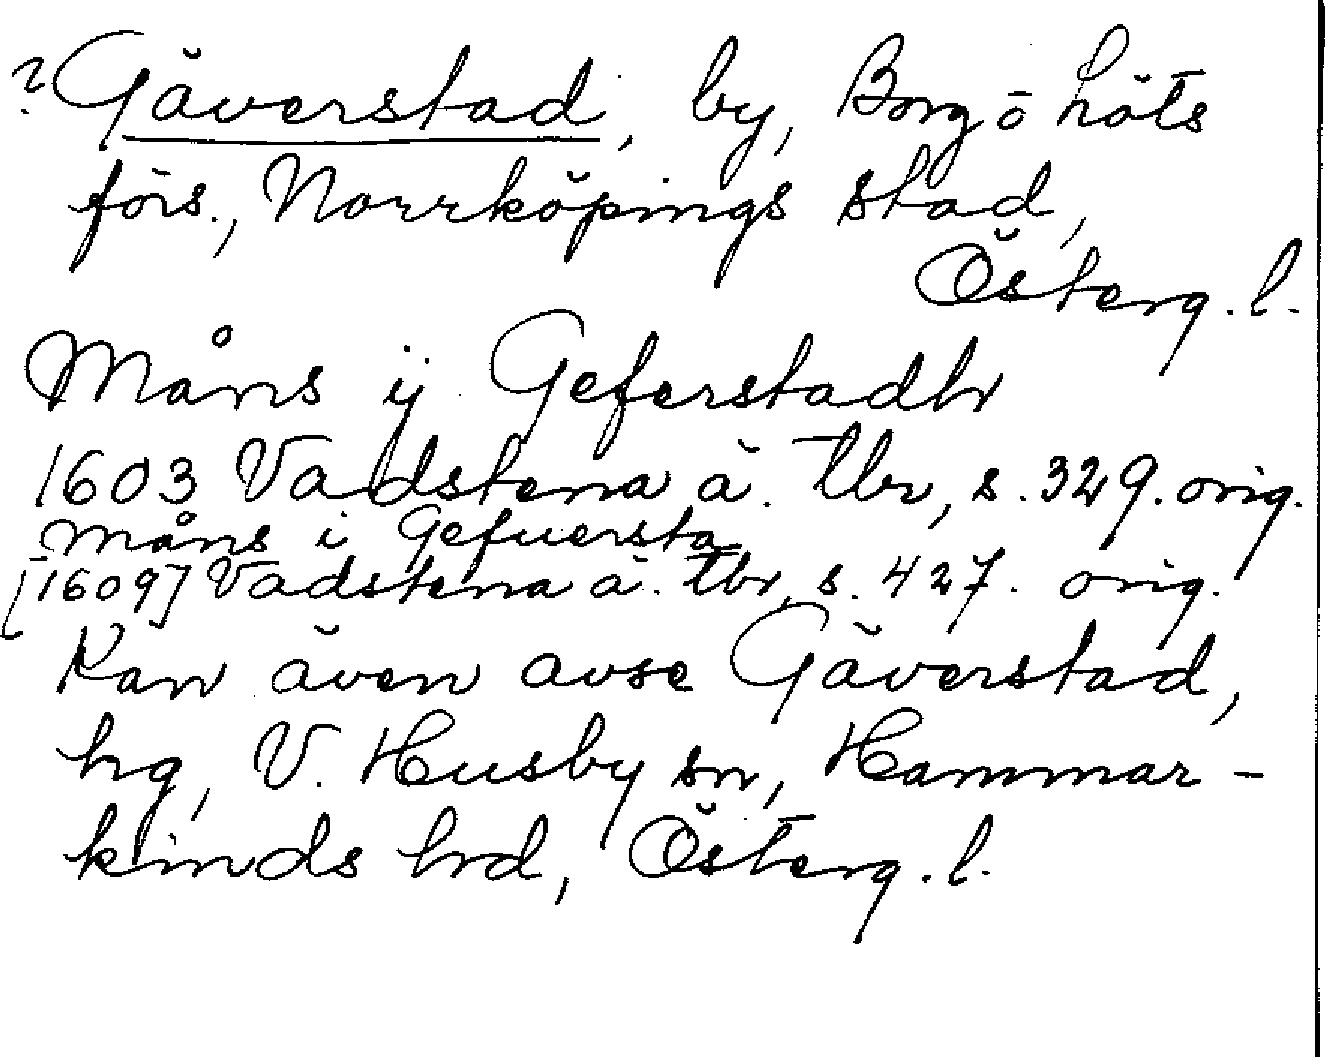 ? Gäverstad, by, Borg o Löts
förs., Norrköpings stad,
Österg. l.
Måns ij Geferstadh
1603 Vadstena ä. tbr, s. 329. orig.
Måns i Gefuersta
[1609] Vadstena ä. tbr, s. 427. orig.
Kan även avse Gäverstad,
hg, V. Husby sn, Hammar-
kinds hrd, Österg. l.